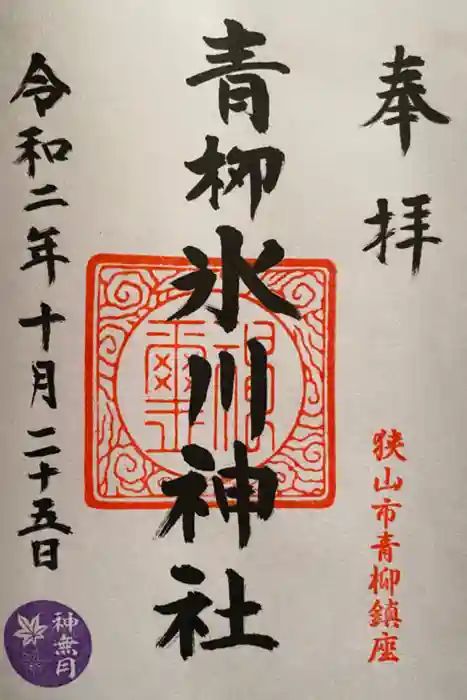 奉拝
狭山市青柳鎮座
青柳氷川神社
令和二年十月二十五日
神無月